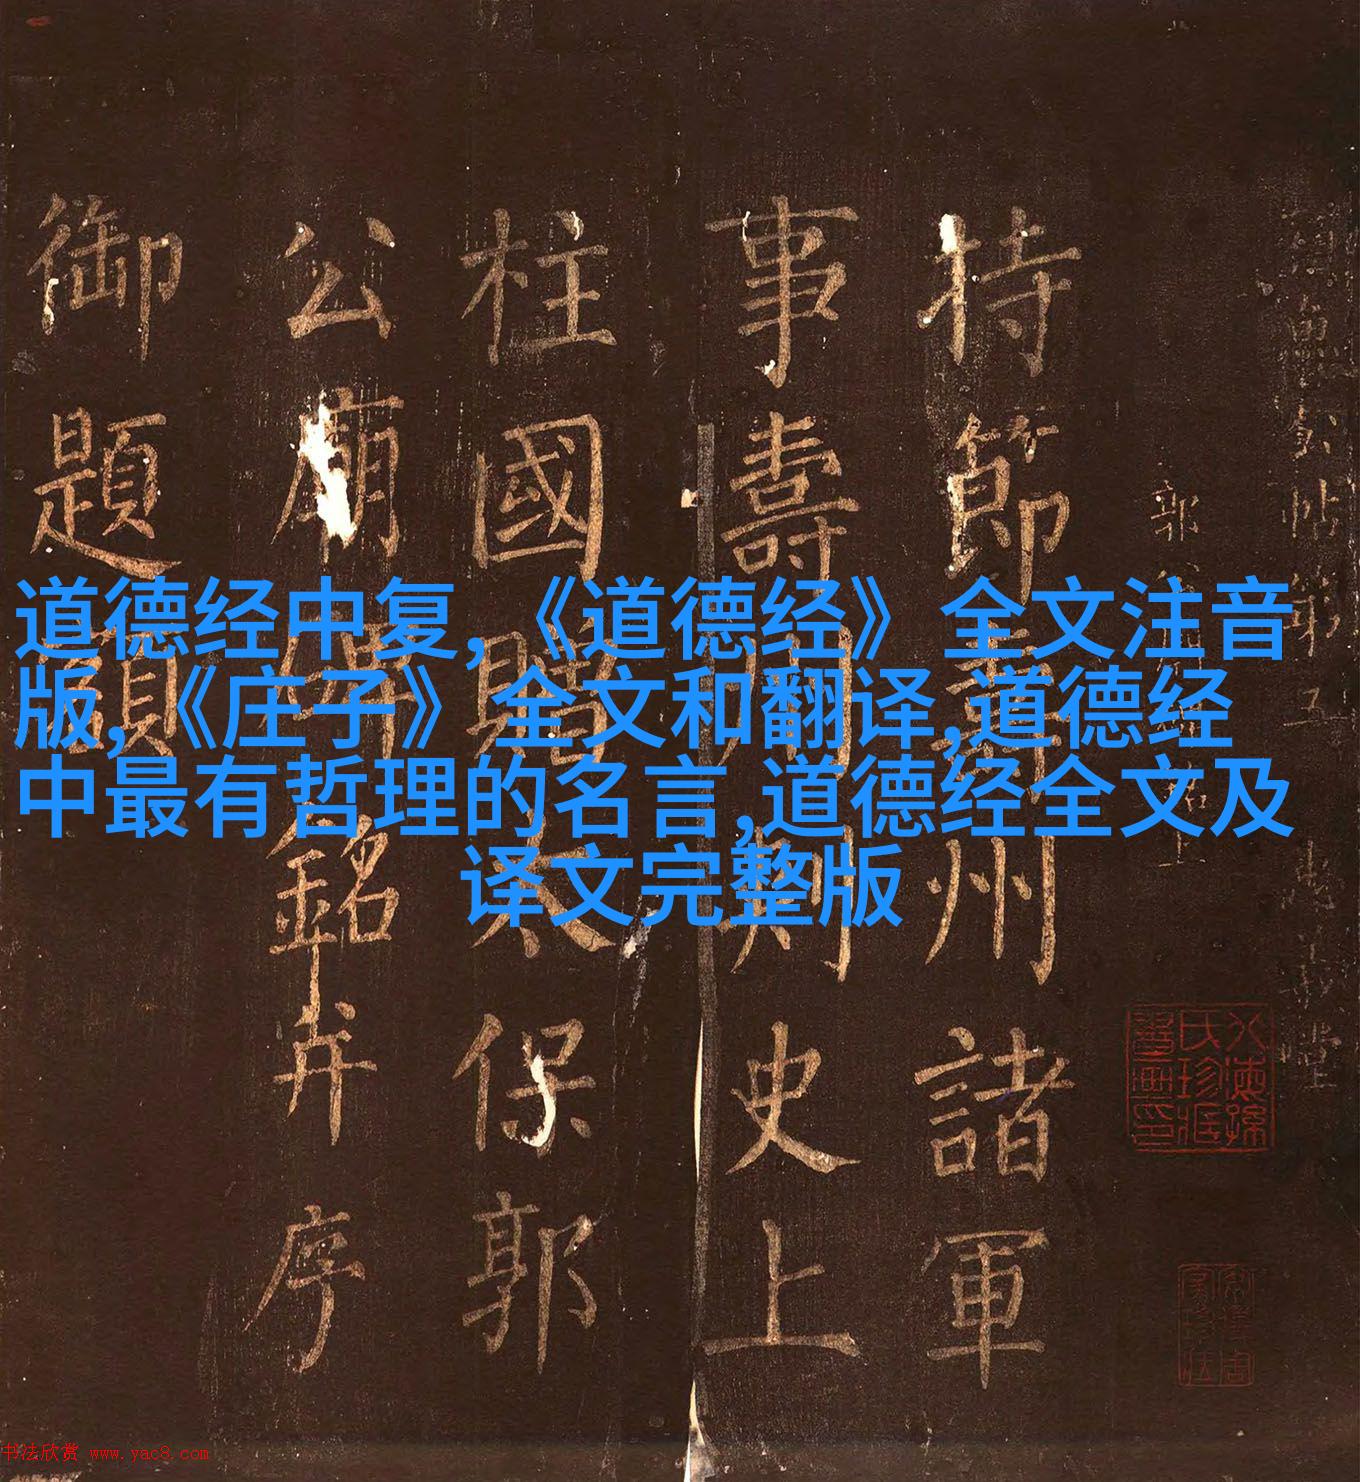 帖第五 忠義堂
郭
持節壽州諸軍
事壽州刺史上
柱國贈太保郭
公廟碑銘并序
御題額
道德经中复,《道德经》全文注音
版,《庄子》全文和翻译,道德经
中最有哲理的名言,道德经全文及
译文完整版
书法欣赏 www.yac8.com